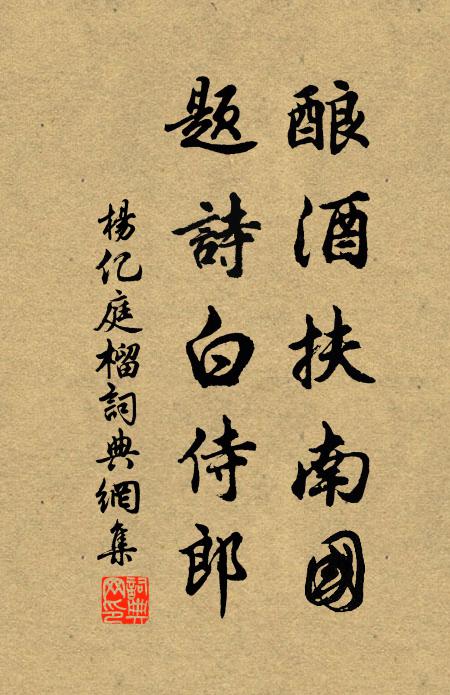 酿酒扶南國
題詩白侍郎
楊亿庭榴詞典網集
詞典网印